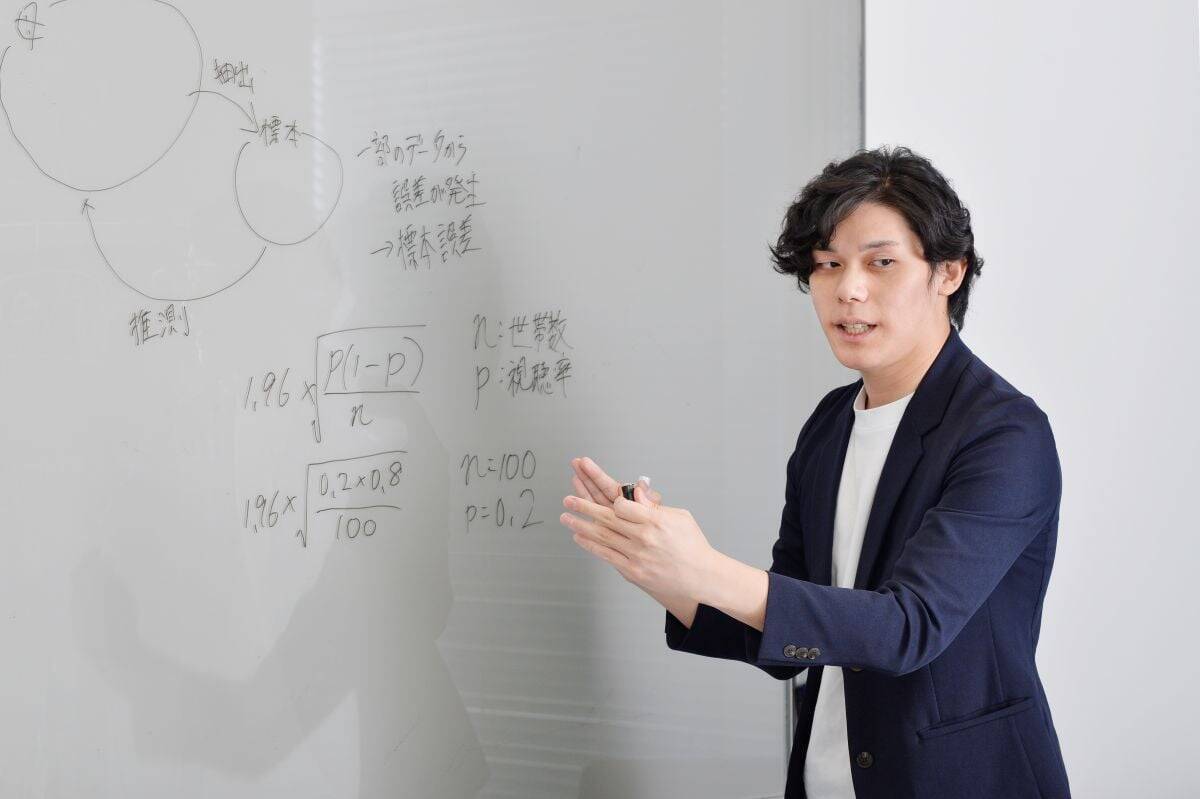 母
抽出
標本
一部のデータから
誤差が発生
→標本誤差
推測
1.96×√(p(1-p)/n)
n:世帯数
p:視聴率
1.96×√(0.2×0.8/100)
n=100
p=0.2